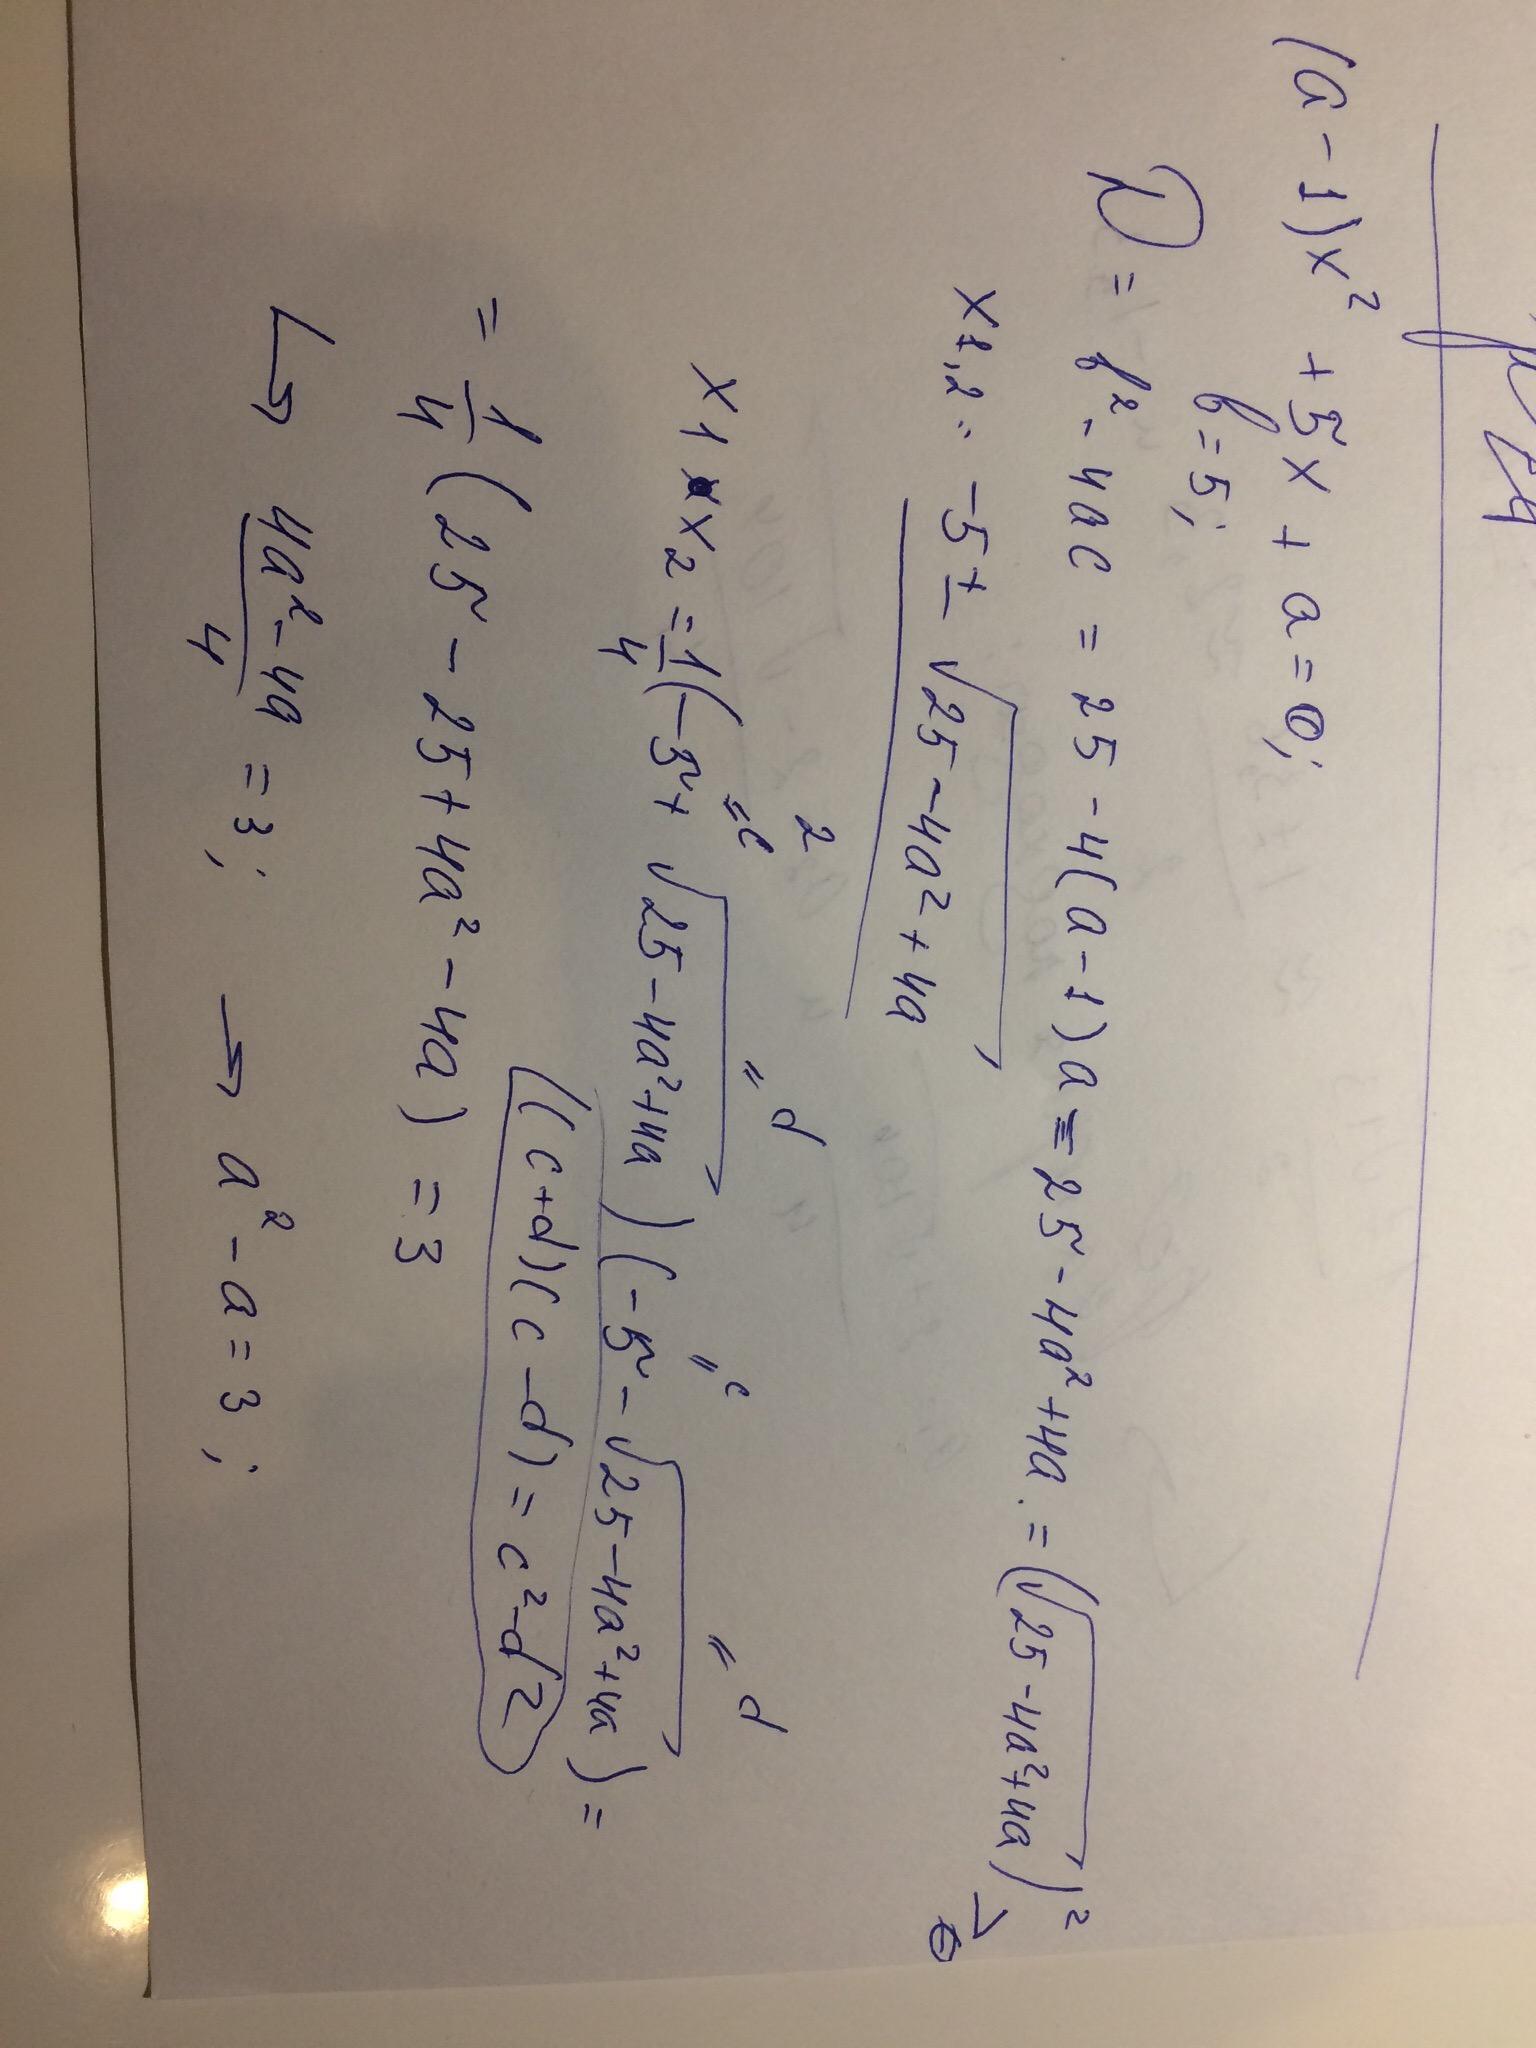 (a-1)x² + 5x + a = 0;
b = 5;
D = b² - 4ac = 25 - 4(a-1)a = 25 - 4a² + 4a = (√25 - 4a² + 4a)² > 0
x1,2 = -5 ± √25 - 4a² + 4a
2
"c "d "c "d
x1 x x2 = 1/4 (-5 + √25 - 4a² + 4a) (-5 - √25 - 4a² + 4a) =
(c+d)(c-d) = c² - d²
= 1/4 (25 - 25 + 4a² - 4a) = 3
↳ 4a² - 4a / 4 = 3; → a² - a = 3;